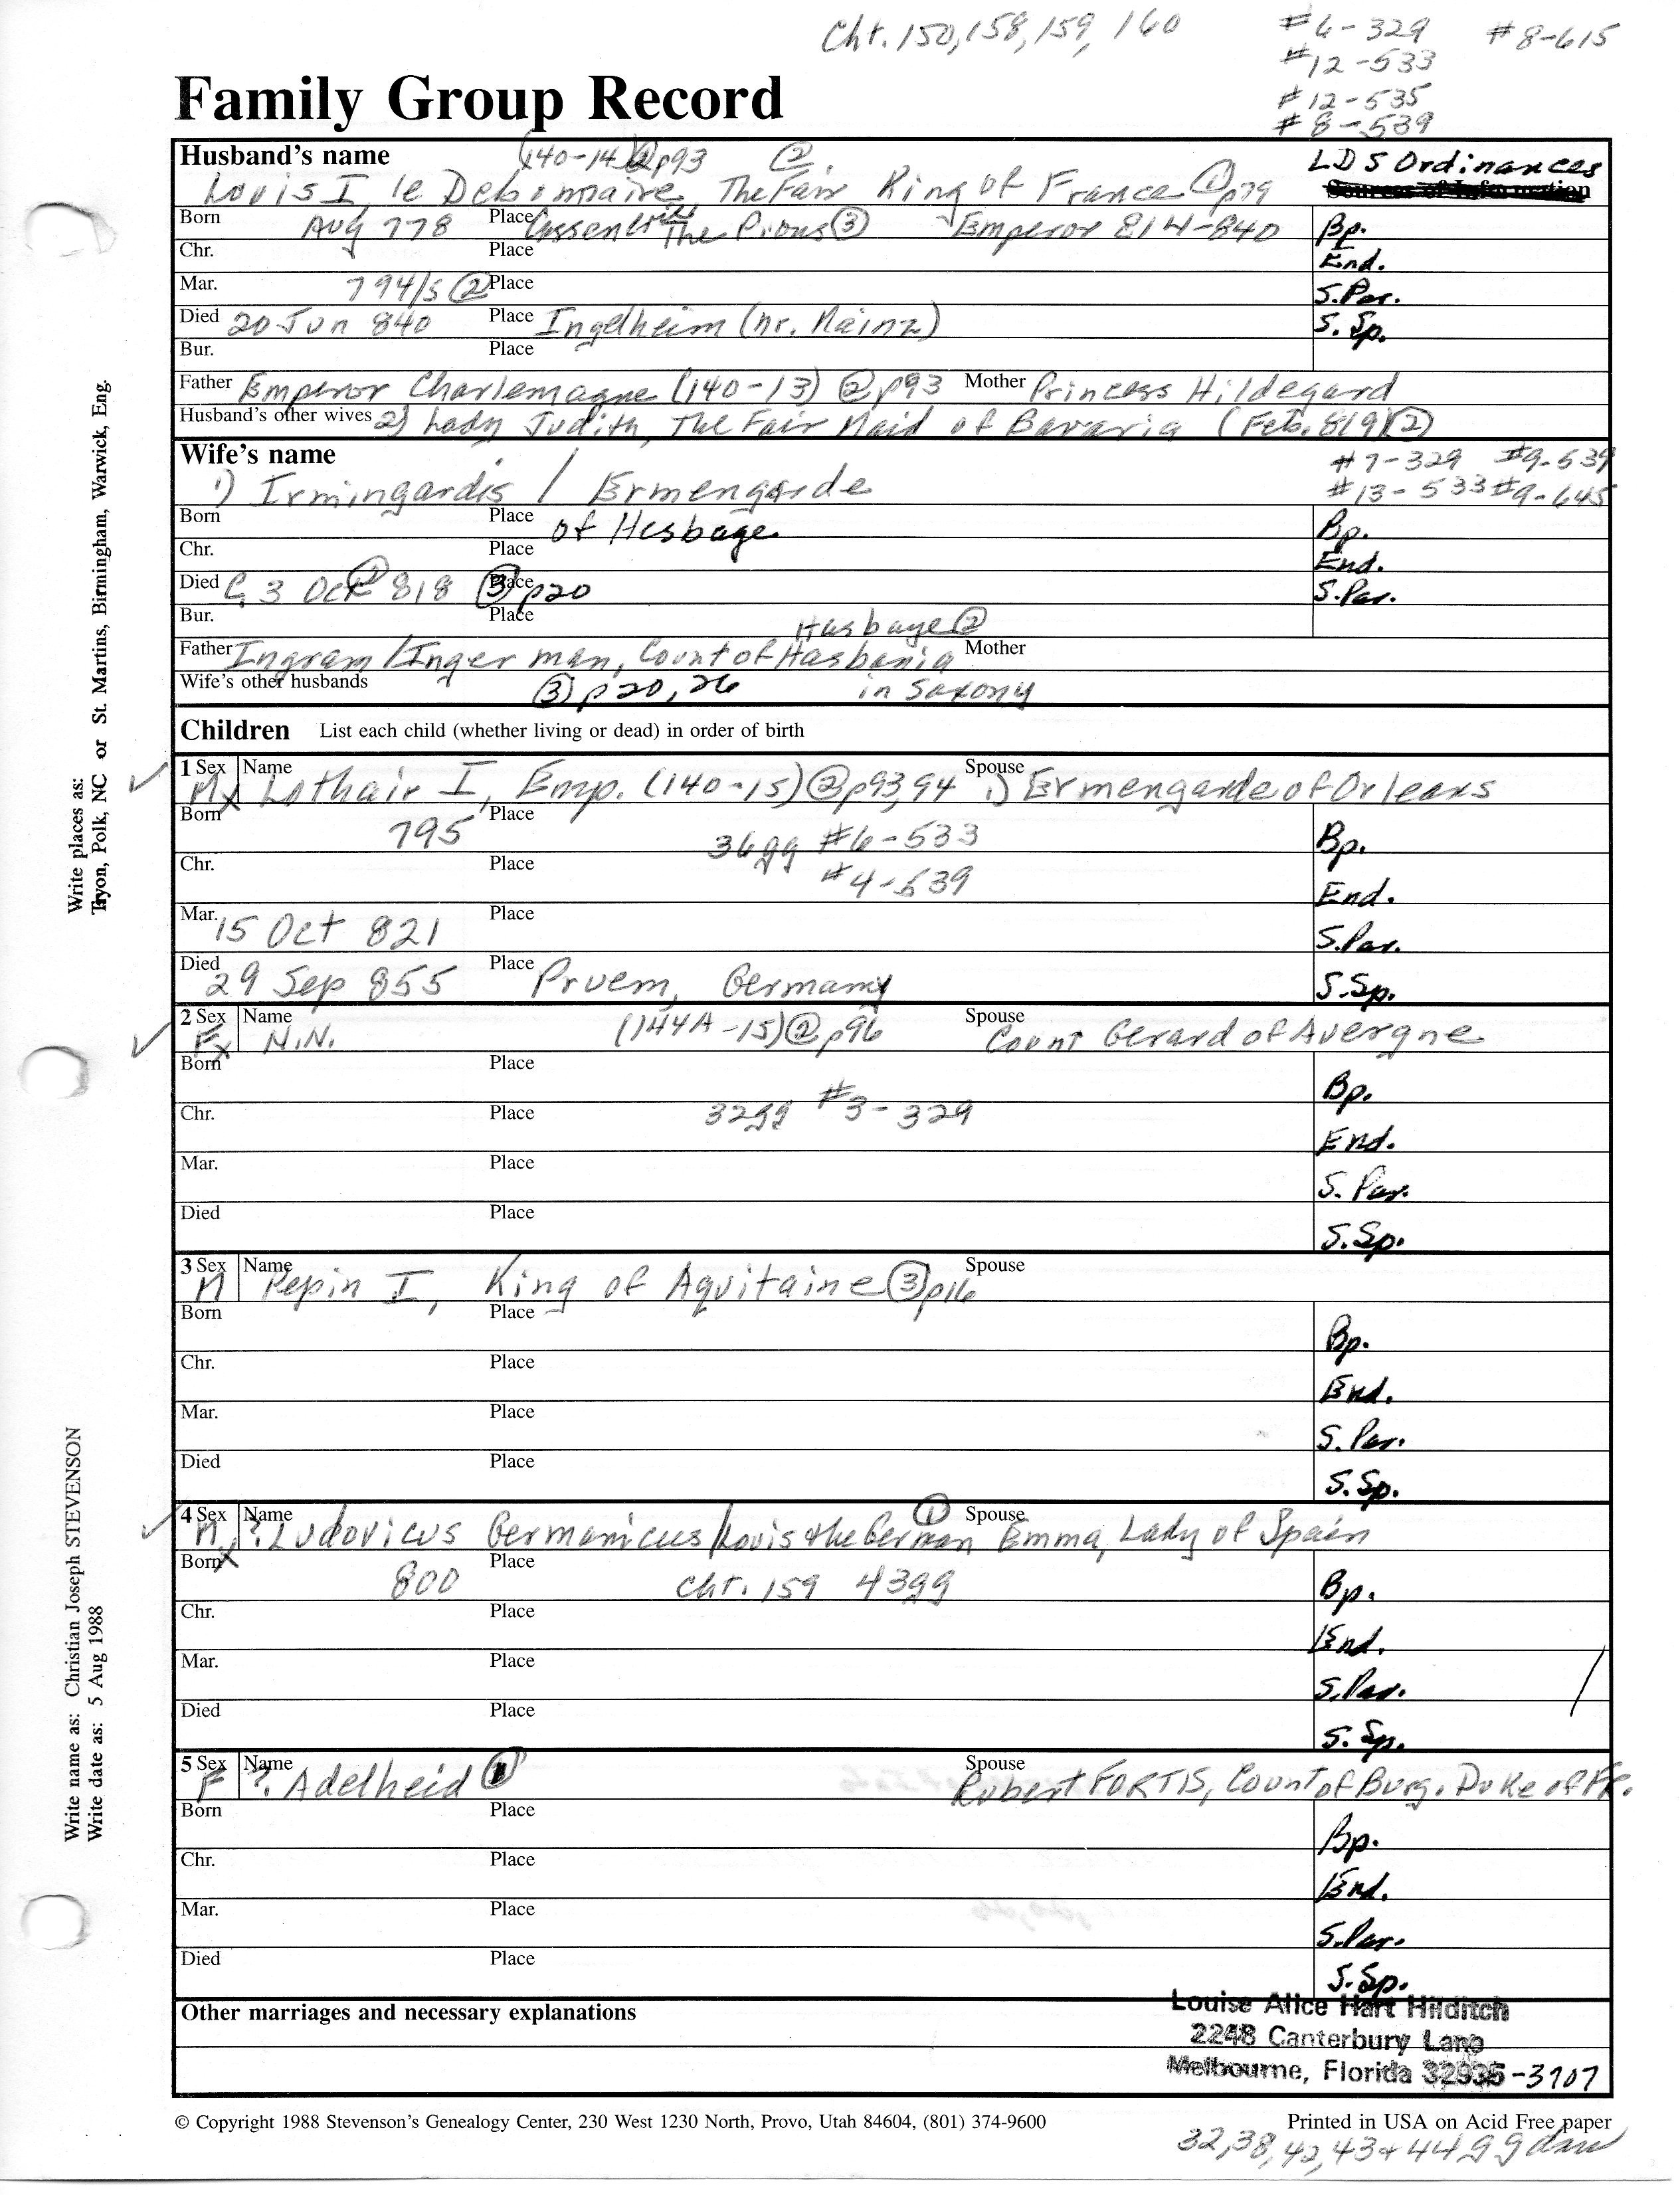 Cht. 150, 158, 159, 160
#6-329 #8-615
#12-533
#12-535
#8-539
Family Group Record
Husband's name (140-14) ② p93 ② LDS Ordinances
Louis I, le Debonnaire, The Fair King of France ① p79
Born Aug 778 Place The Pious ③ Emperor 814-840 Bp.
Chr. Place End.
Mar. 794/5 ② Place S.Par.
Died 20 Jun 840 Place Ingelheim (nr. Mainz) S. Sp.
Bur. Place
Father Emperor Charlemagne (140-13) ② p93 Mother Princess Hildegard
Husband's other wives 2) Lady Judith, The Fair Maid of Bavaria (Feb. 819) ②
Wife's name #7-329 #9-539
1) Irmingardis / Ermengarde #13-533 #9-645
Born Place of Hesbage Bp.
Chr. Place End.
Died 3 Oct 818 Place ③ p20 S.Par.
Bur. Place Hasbaye ②
Father Ingram / Ingerman, Count of Hasbania Mother
Wife's other husbands ③ p20, 26 in Saxony
Children List each child (whether living or dead) in order of birth
1 Sex M Name Lothair I, Emp. (140-15) ② p93,94 Spouse 1) Ermengarde of Orleans
Born 795 Place 36gg #6-533 Bp.
Chr. Place #4-539 End.
Mar. 15 Oct 821 Place S.Par.
Died 29 Sep 855 Place Pruem, Germany S.Sp.
2 Sex F Name N.N. (144A-15) ② p96 Spouse Count Gerard of Avergne
Born Place Bp.
Chr. Place 32gg #3-329 End.
Mar. Place S. Par.
Died Place S.Sp.
3 Sex M Name Pepin I, King of Aquitaine ③ p16 Spouse
Born Place Bp.
Chr. Place End.
Mar. Place S. Par.
Died Place S. Sp.
4 Sex M Name ? Ludovicus Germanicus / Louis the German ① Spouse Emma, Lady of Spain
Born 800 Place Cht. 159 43gg Bp.
Chr. Place End.
Mar. Place S.Par.
Died Place S. Sp.
5 Sex F Name ? Adelheid ① Spouse Robert FORTIS, Count of Burg. Duke of Fr.
Born Place Bp.
Chr. Place End.
Mar. Place S.Par.
Died Place S.Sp.
Other marriages and necessary explanations
Louise Alice Hart Hilditch
2248 Canterbury Lane
Melbourne, Florida 32935-3707
© Copyright 1988 Stevenson's Genealogy Center, 230 West 1230 North, Provo, Utah 84604, (801) 374-9600 Printed in USA on Acid Free paper
32,38,42,43+44gg
Write places as:
Tryon, Polk, NC or St. Martins, Birmingham, Warwick, Eng.
Write name as: Christian Joseph STEVENSON
Write date as: 5 Aug 1988